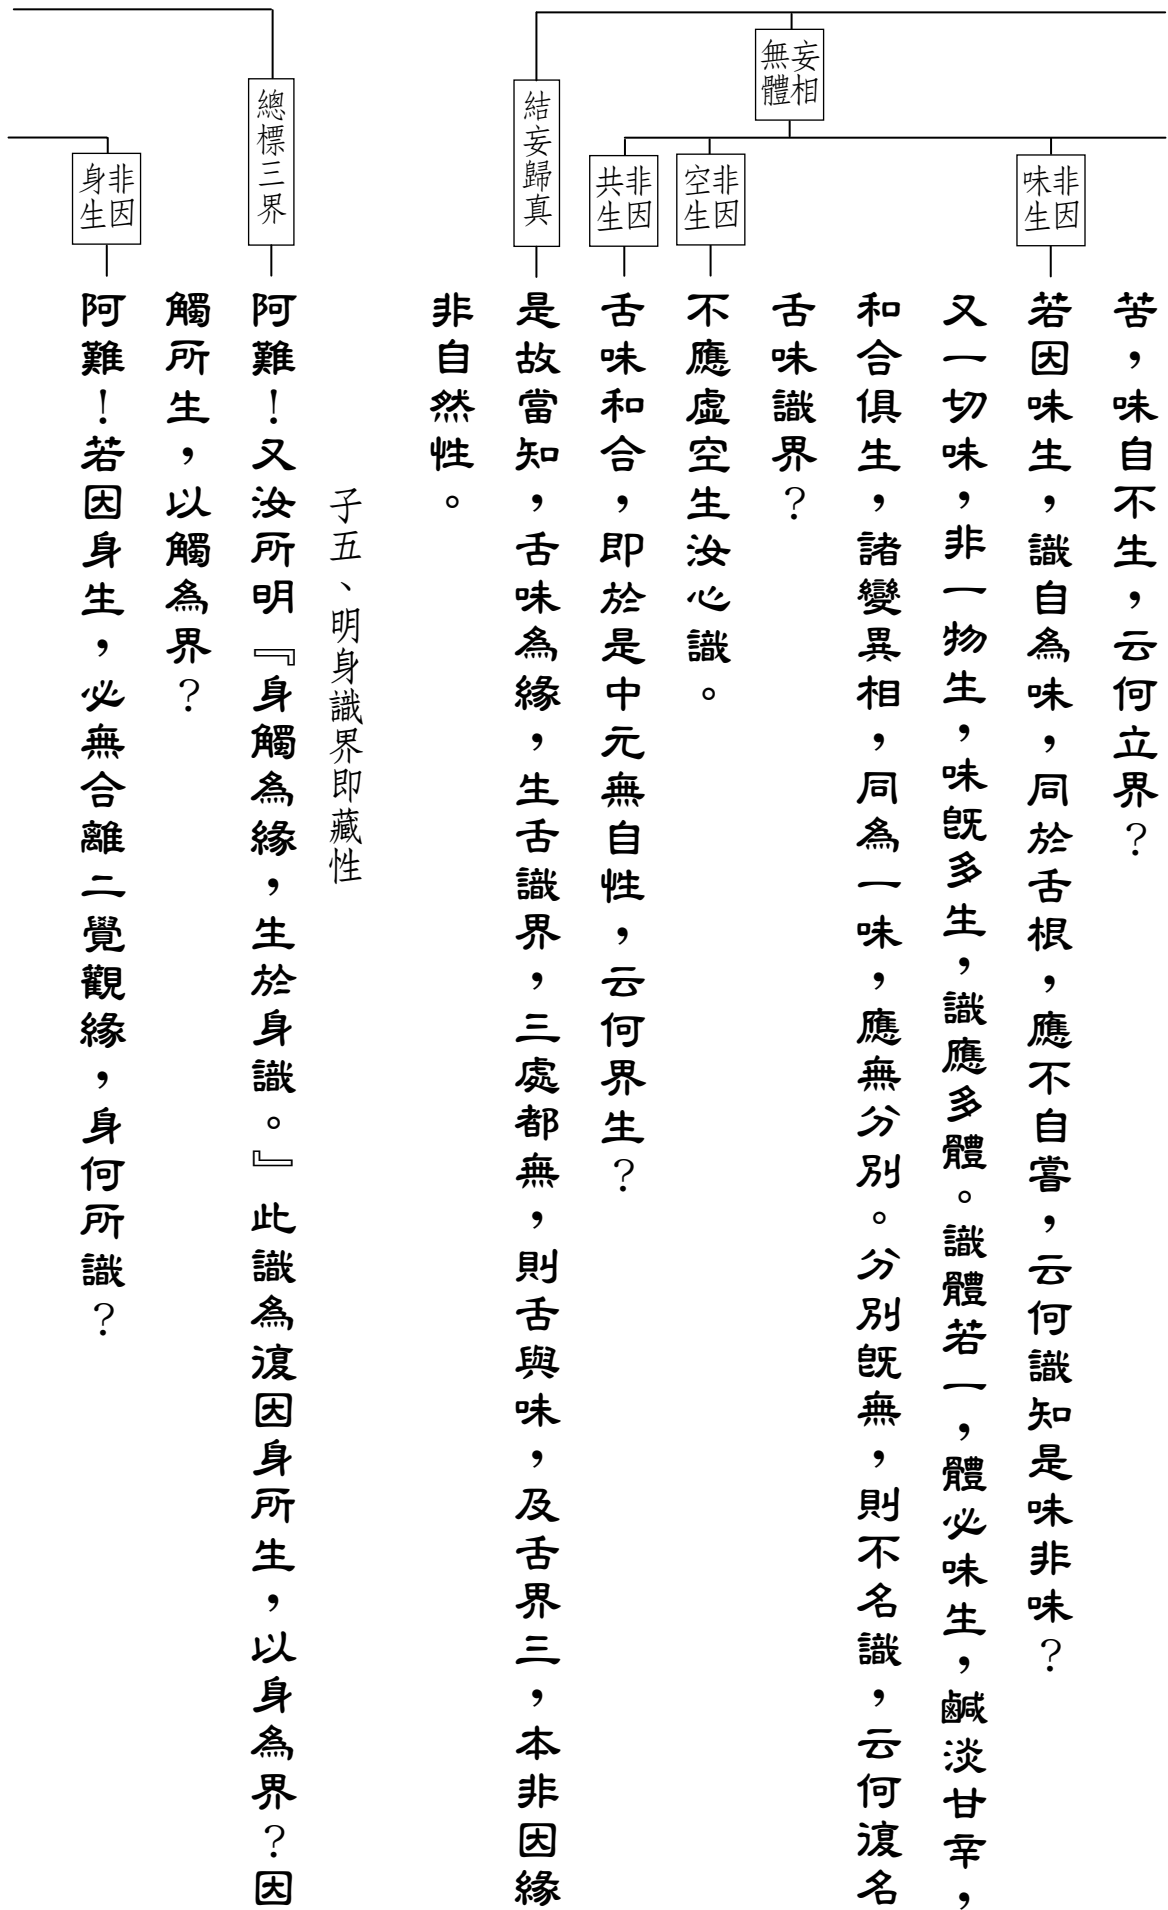 妄相無體
非因味生
非因空生
非因共生
結妄歸真
總標三界
非因身生
苦，味自不生，云何立界？
若因味生，識自為味，同於舌根，應不自嘗，云何識知是味非味？
又一切味，非一物生，味既多生，識應多體。識體若一，體必味生，鹹淡甘辛，
和合俱生，諸變異相，同為一味，應無分別。分別既無，則不名識，云何復名
舌味識界？
不應虛空生汝心識。
舌味和合，即於是中元無自性，云何界生？
是故當知，舌味為緣，生舌識界，三處都無，則舌與味，及舌界三，本非因緣
非自然性。
子五、明身識界即藏性
阿難！又汝所明『身觸為緣，生於身識。』此識為復因身所生，以身為界？因
觸所生，以觸為界？
阿難！若因身生，必無合離二覺觀緣，身何所識？